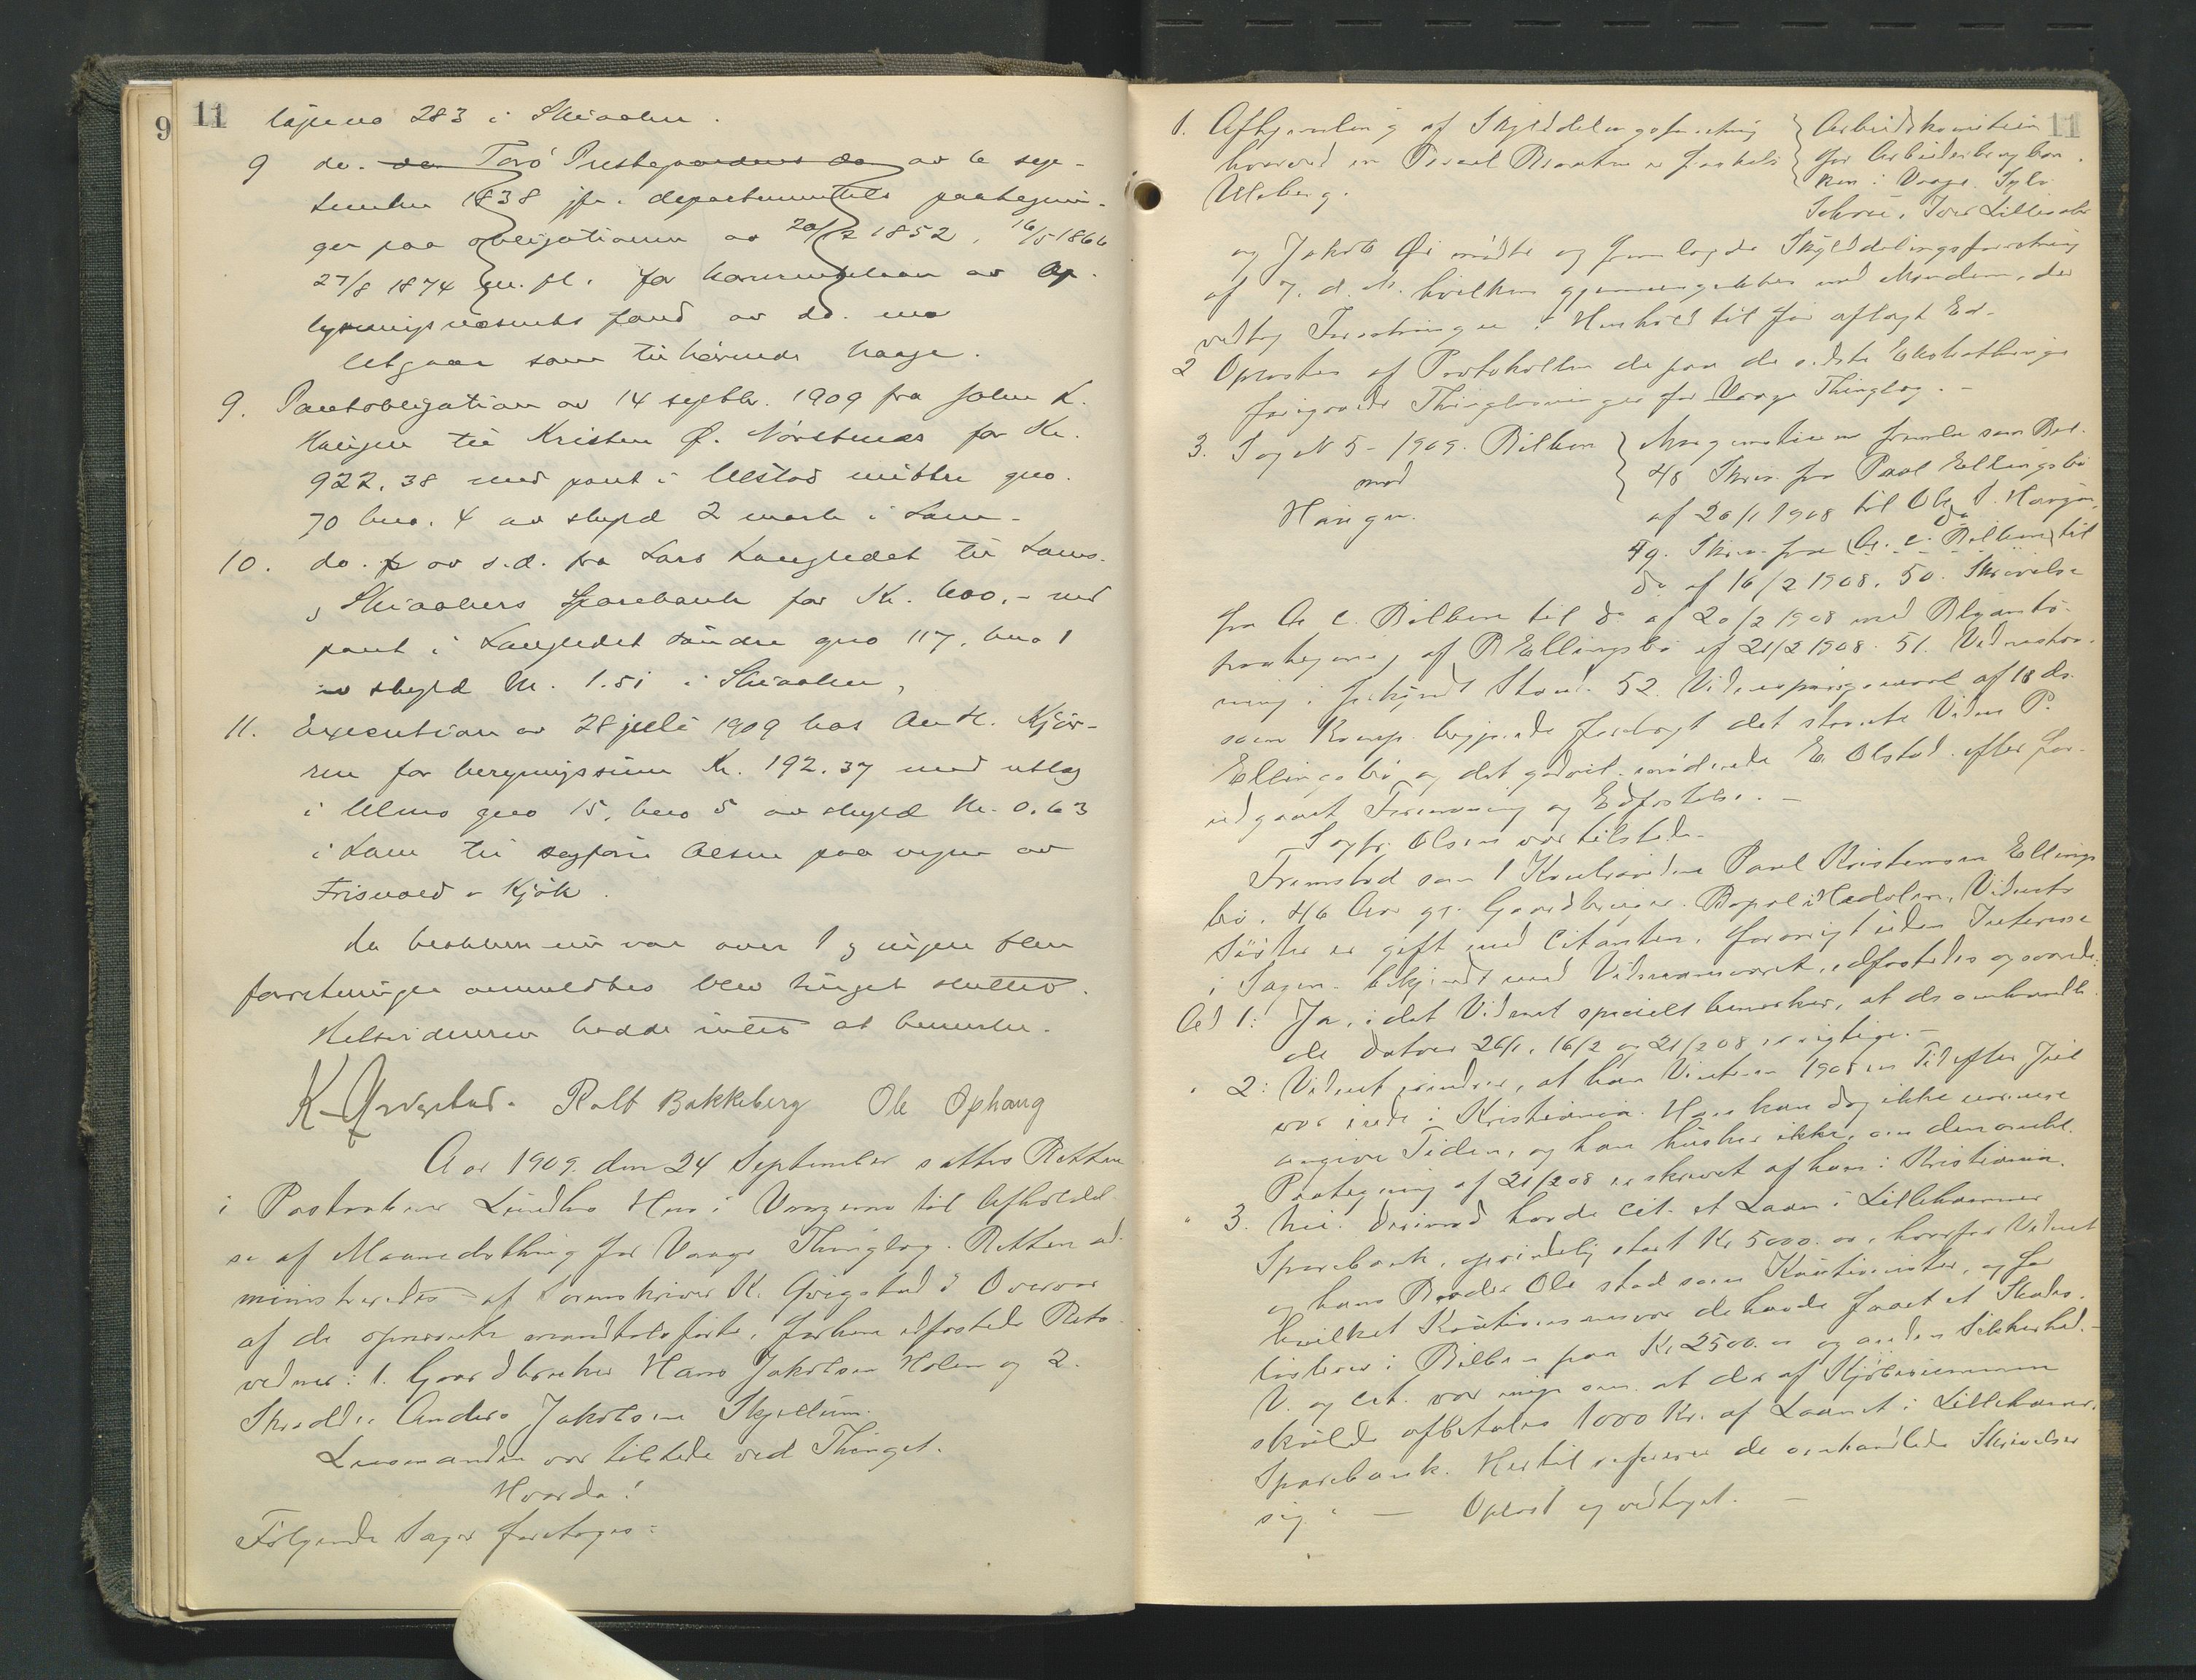 11
løpeno 283 i Skiaaker.
9 do. av 6 sep-
tember 1838 jfr. departementets paategnin-
ger paa obligationen av 20/7 1852, 16/5 1866
27/8 1874 m. fl. for av Op-
lysningsvæsenets fond av do.
Utgaar som tilhørende Vaage.
9. Pantobligation av 14 septbr. 1909 fra John K.
til Kristen Ø. for Kr.
922.38 med pant i Ulstad midtre gno.
70 bno. 4 av skyld 2 mark i Lom.
10. do. av s.d. fra Lars Langledet til Loms-
Skiaakers Sparebank for Kr. 600.- med
pant i Langledet søndre gno 117, bno 1
av skyld M. 1.51 i Skiaaker,
11. Execution av 28 juli 1909 hos
for Kr. 192.37 med utlæg
i gno 15, bno 5 av skyld M. 0.63
i Lom til sagfører Olsen paa vegne av
Frisvold & Kjøk.
Da klokken nu var over 1 og ingen flere
forretninger anmeldtes blev tinget sluttet.
Retsvidnerne hadde intet at bemerke.
K. Qvigstad. Rolf Bakkeberg Ole Ophaug
Aar 1909 den 24 September sattes Retten
i Postaabner Hus i Vaagemo til Afholdel-
se af Maanedsthing for Vaage Thinglag. Retten ad-
ministreredes af Sorenskriver K. Qvigstad i Overvær
af de opnævnte mandtalsførte, forhen edfæstede Rets-
vidner: 1. Gaardbruker Hans Jakobsen Holen og 2.
Skrædder Anders Jakobsen Skjellum.
Lensmanden var tilstede ved Thinget.
Hvorda!
Følgende Sager foretoges:
11
1. Afhjemling af Skylddelingsforretning } Arbeidskomiteen
hvorved en Parcel er fraskilt } for Arbeiderbrugban-
Ulsberg. } ken i Vaage. Syver
Iver Lillesæter
og Jakob Øi mødte og fremlagde Skylddelingsforretning
af 7. d. M. hvilken gjennemgikkes med Mændene, der
vedtog Forretningen i Henhold til før aflagt Ed.-
2 Oplæstes af Protokollen de paa de sidste Extrathinge
foregaaede Thinglæsninger for Vaage Thinglag. -
3. Sag N 5 - 1909. Bilben } fremla som Bil.
mod } 48 Skriv. fra Paul Ellingsbø
Haugen. af 26/1 1908 til Ole P. Haugen,
49. Skriv. fra (A. C. Bilben) til
do af 16/2 1908. 50. Skrivelse
fra A. C. Bilben til do af 20/2 1908 med
paategning af P Ellingsbø af 21/2 1908. 51. Vidnestæv-
ning i forkyndt Stand. 52. Vidnespørgsmaal af 18 ds.
som begjærede forelagt det stævnte Vidne P.
Ellingsbø og det godvil. mødende E. Olstad efter for-
udgaaet Formaning og Edfæstelse. -
Sagfr. Olsen var tilstede.
Fremstod som 1 Paul Kristensen Ellings-
bø, 46 Aar g. Gaardbruger. Bopæl i Hedalen, Vidnets
Søster er gift med Citanten, forøvrigt uden Interesse
i Sagen. Bekjendt med Vidneansvaret, edfæstedes og svarede:
Ad 1: Ja, idet Vidnet specielt bemærker, at de omhandle-
de Datoer 26/1, 16/2 og 21/2 08 er rigtige. -
" 2: Vidnet erindrer, at han Vinteren 1908 en Tid efter Jul
var inde i Kristiania. Han kan dog ikke nærmere
angive Tiden, og han husker ikke, om den omh.
Paategning af 21/2 08 er skrevet af ham i Kristiania.
" 3. Nei. Derimod havde Cit. et Laan i Lillehammer
Sparebank, oprindelig stort Kr 5000.00, hvorfor Vidnet
og hans Broder Ole stod som Kautionister, og for
hvilket Kautionsansvar de havde faaet et Skades-
løsbrev i Bilben paa Kr. 2500.00 og anden Sikkerhed. -
V. og Cit. var enige om, at der af Kjøbesummen
skulde afbetales 1000 Kr. af Laanet i Lillehammer
Sparebank. Hertil refererer de omhandlede Skrivelser
sig. - Oplæst og vedtaget. -
9